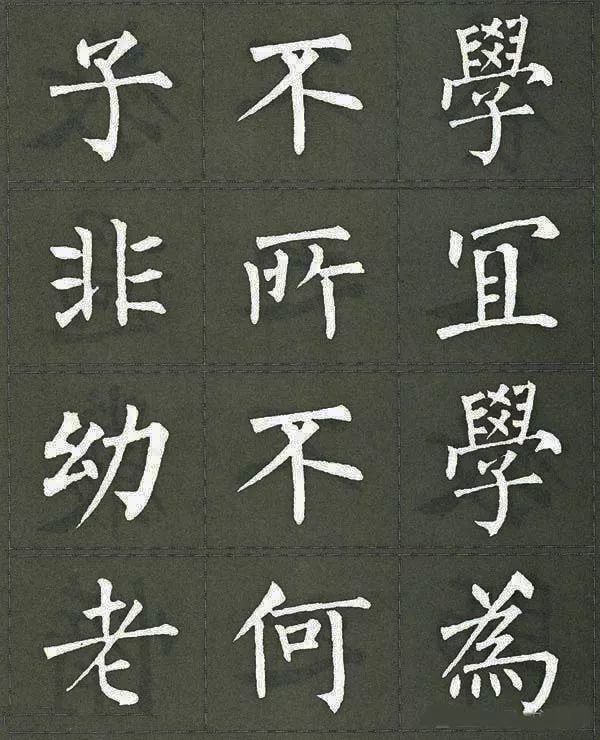 子不學
非所冝
幼不學
老何為